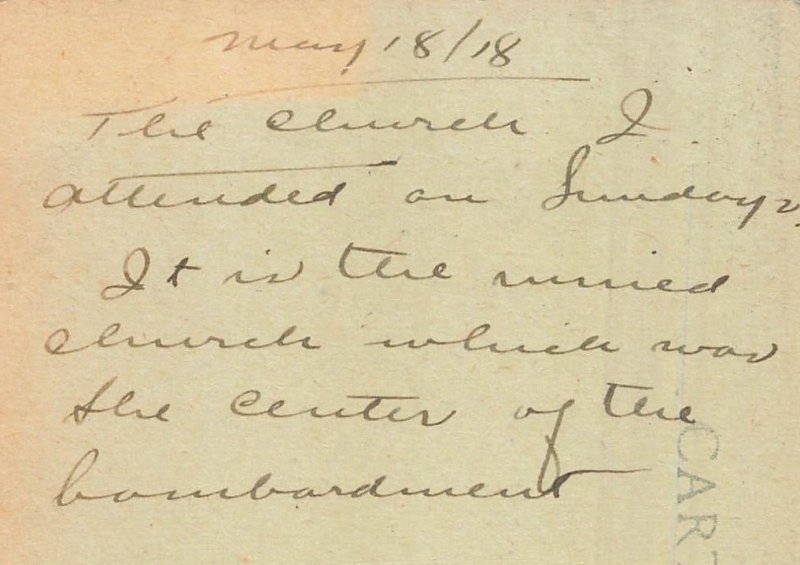 May 18/18
The church I
attended on Sundays.
It is the ruined
church which was
the center of the
bombardment
CART